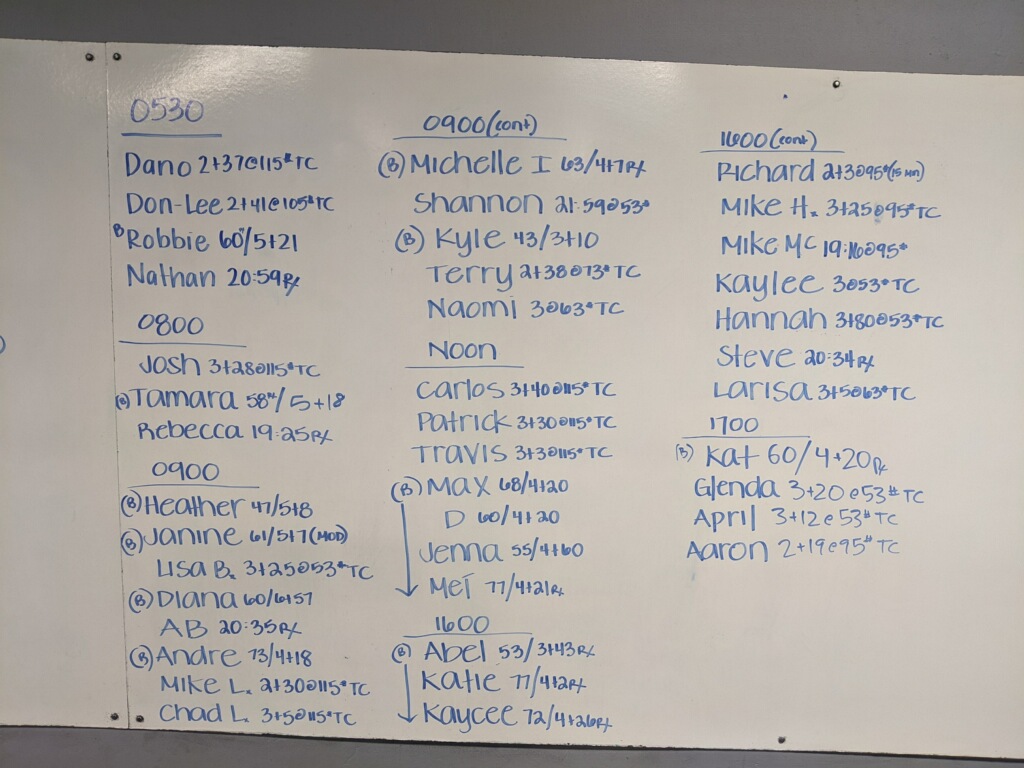 0530
Dano 2+37@115# TC
Don-Lee 2+41@105# TC
B Robbie 60"/5+21
Nathan 20:59 Rx
0800
Josh 3+28@115# TC
(B) Tamara 58"/5+18
Rebecca 19:25 Rx
0900
(B) Heather 47/5+8
(B) Janine 61/5+7 (MOD)
Lisa B. 3+25@53# TC
(B) Diana 60/6+57
AB 20:35 Rx
(B) Andre 73/4+18
Mike L. 2+30@115# TC
Chad L. 3+5@115# TC
0900 (cont)
(B) Michelle I 63/4+7 Rx
Shannon 21:59@53#
(B) Kyle 43/3+10
Terry 2+38@73# TC
Naomi 3@63# TC
Noon
Carlos 3+40@115# TC
Patrick 3+30@115# TC
Travis 3+3@115# TC
(B) Max 68/4+20
D 60/4+20
Jenna 55/4+60
Mei 77/4+21 Rx
1600
(B) Abel 53/3+43 Rx
Katie 77/4+2 Rx
Kaycee 72/4+26 Rx
1600 (cont)
Richard 2+3@95# (15 min)
Mike H. 3+25@95# TC
Mike Mc 19:16@95#
Kaylee 3@53# TC
Hannah 3+80@53# TC
Steve 20:34 Rx
Larisa 3+5@63# TC
1700
(B) Kat 60/4+20 Rx
Glenda 3+20@53# TC
April 3+12@53# TC
Aaron 2+19@95# TC